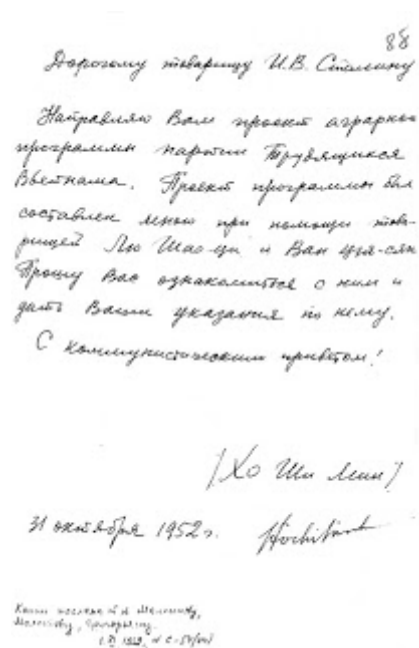 88
Дорогому товарищу И.В. Сталину
Направляю Вам проект аграрной
программы партии Трудящихся
Вьетнама. Проект программы был
составлен мною при помощи това-
рищей Лю Шао-ци и Ван Цзя-сян
Прошу Вас ознакомиться с ним и
дать Ваши указания по нему.
С коммунистическим приветом!
/Хо Ши Мин/
31 октября 1952 г.
Hochiminh
Копии посланы т.т. Маленкову,